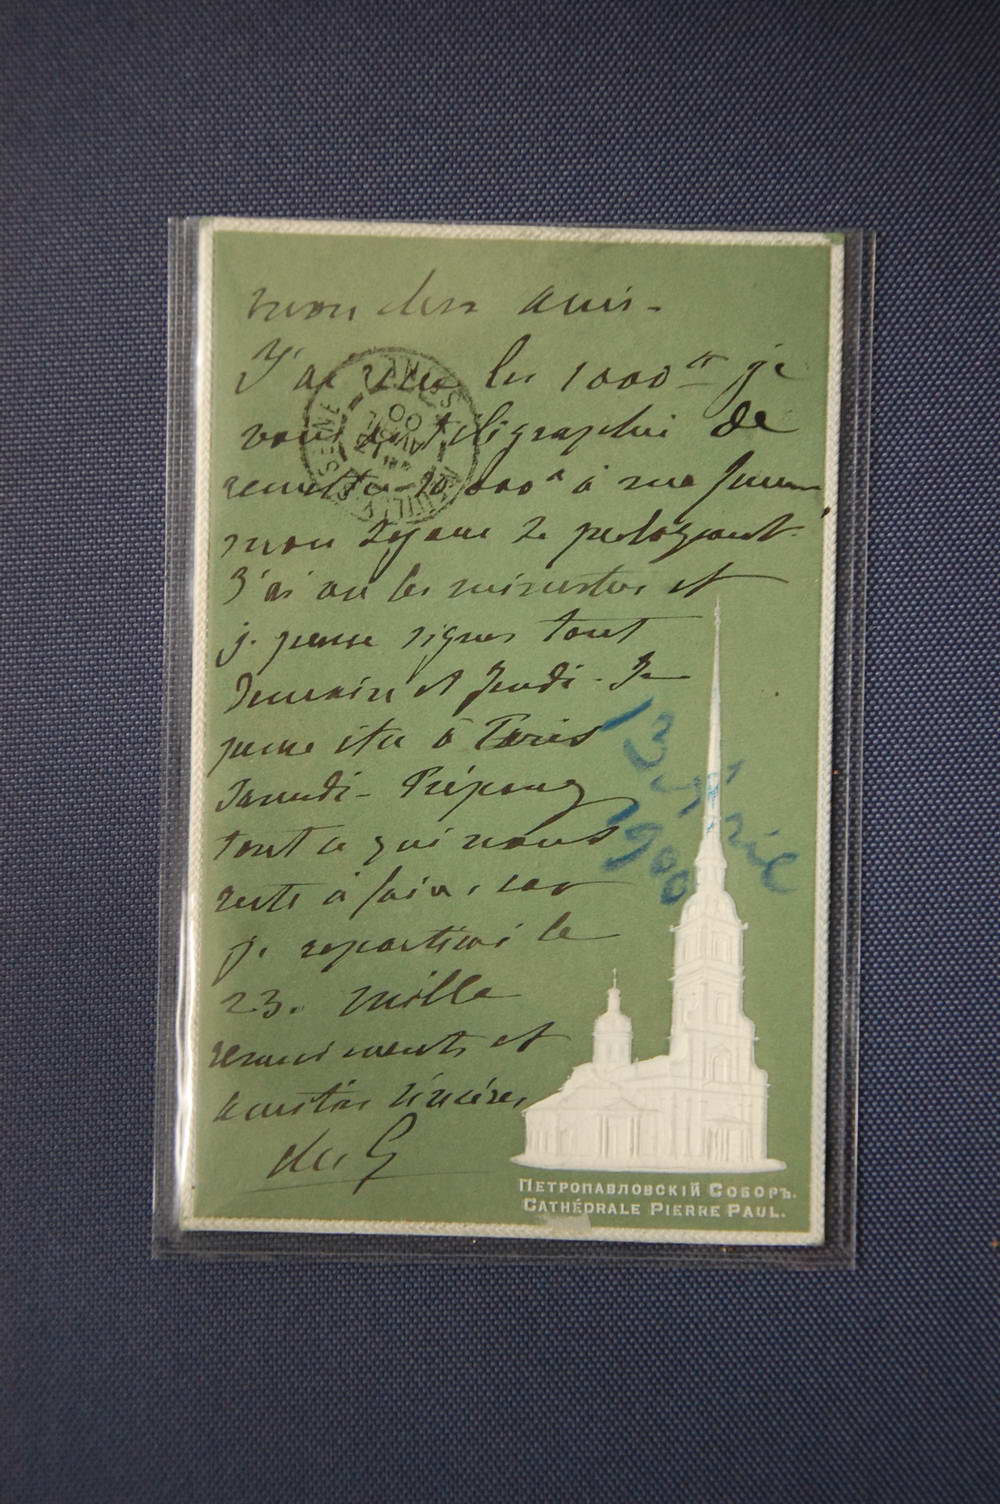 mon cher ami -
J'ai reçu les 1000 fr je
vous ai télégraphié de
remettre 10.000 fr à
mon
J'ai vu les ministres et
je pense signer tout
Demain et Jeudi - Je
pense être à Paris
Samedi - Préparez
tout ce qui nous
reste à faire, car
je repartirai le
23. Mille
remerciements et
amitiés sincères
13 avril
1900
ПЕТРОПАВЛОВСКІЙ СОБОРЪ.
CATHÉDRALE PIERRE PAUL.